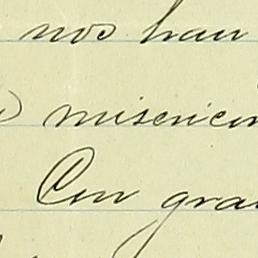 nos han
misericor
Con gra